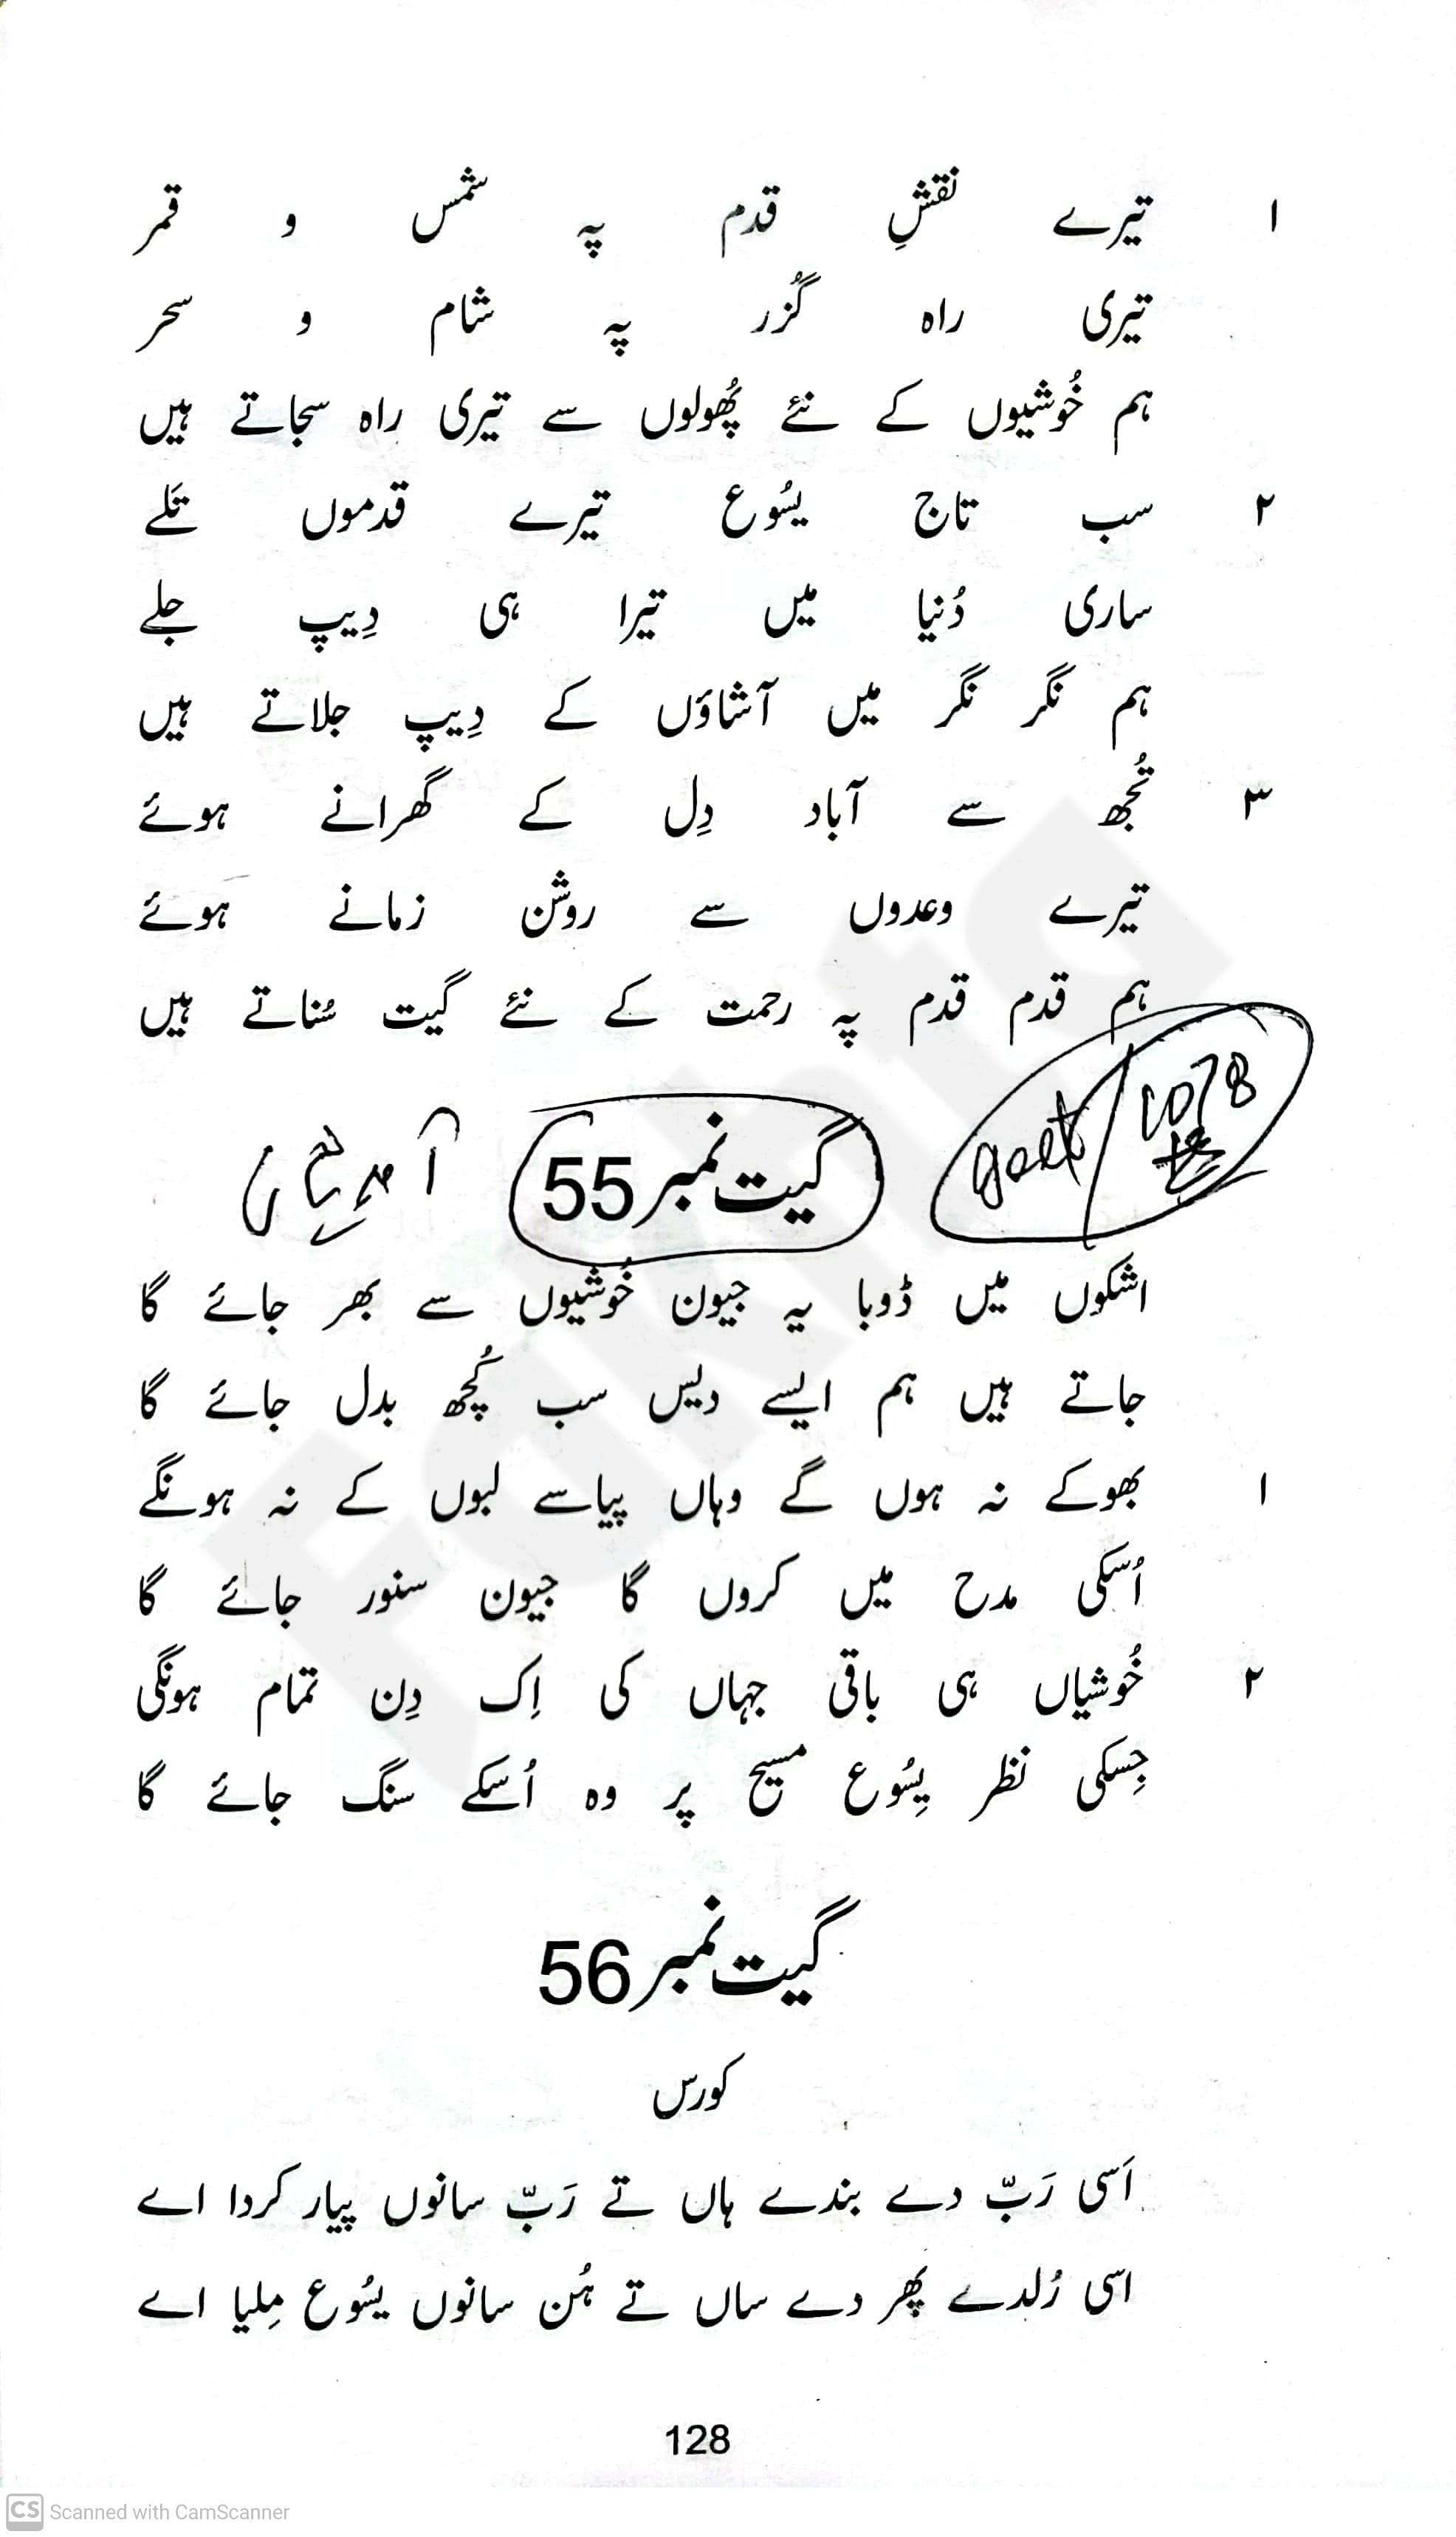 ۱ تیرے نقشِ قدم پہ شمس و قمر
تیری راہ گُزر پہ شام و سحر
ہم خُوشیوں کے نئے پُھولوں سے تیری راہ سجاتے ہیں
۲ سب تاج یسُوع تیرے قدموں تَلے
ساری دُنیا میں تیرا ہی دِیپ جلے
ہم نگر نگر میں آشاؤں کے دِیپ جلاتے ہیں
۳ تُجھ سے آباد دِل کے گھرانے ہوئے
تیرے وعدوں سے روشن زمانے ہوئے
ہم قدم قدم پہ رحمت کے نئے گیت سُناتے ہیں
geet 1078
گیت نمبر 55
اشکوں میں ڈوبا یہ جیون خُوشیوں سے بھر جائے گا
جاتے ہیں ہم ایسے دیس سب کُچھ بدل جائے گا
۱ بھوکے نہ ہوں گے وہاں پیاسے لبوں کے نہ ہونگے
اُسکی مدح میں کروں گا جیون سنور جائے گا
۲ خُوشیاں ہی باقی جہاں کی اِک دِن تمام ہونگی
جِسکی نظر یِسُوع مسیح پر وہ اُسکے سنگ جائے گا
گیت نمبر 56
کورس
اَسی رَبّ دے بندے ہاں تے رَبّ سانوں پیار کردا اے
اسی رُلدے پھر دے ساں تے ہُن سانوں یسُوع مِلیا اے
128
CS Scanned with CamScanner